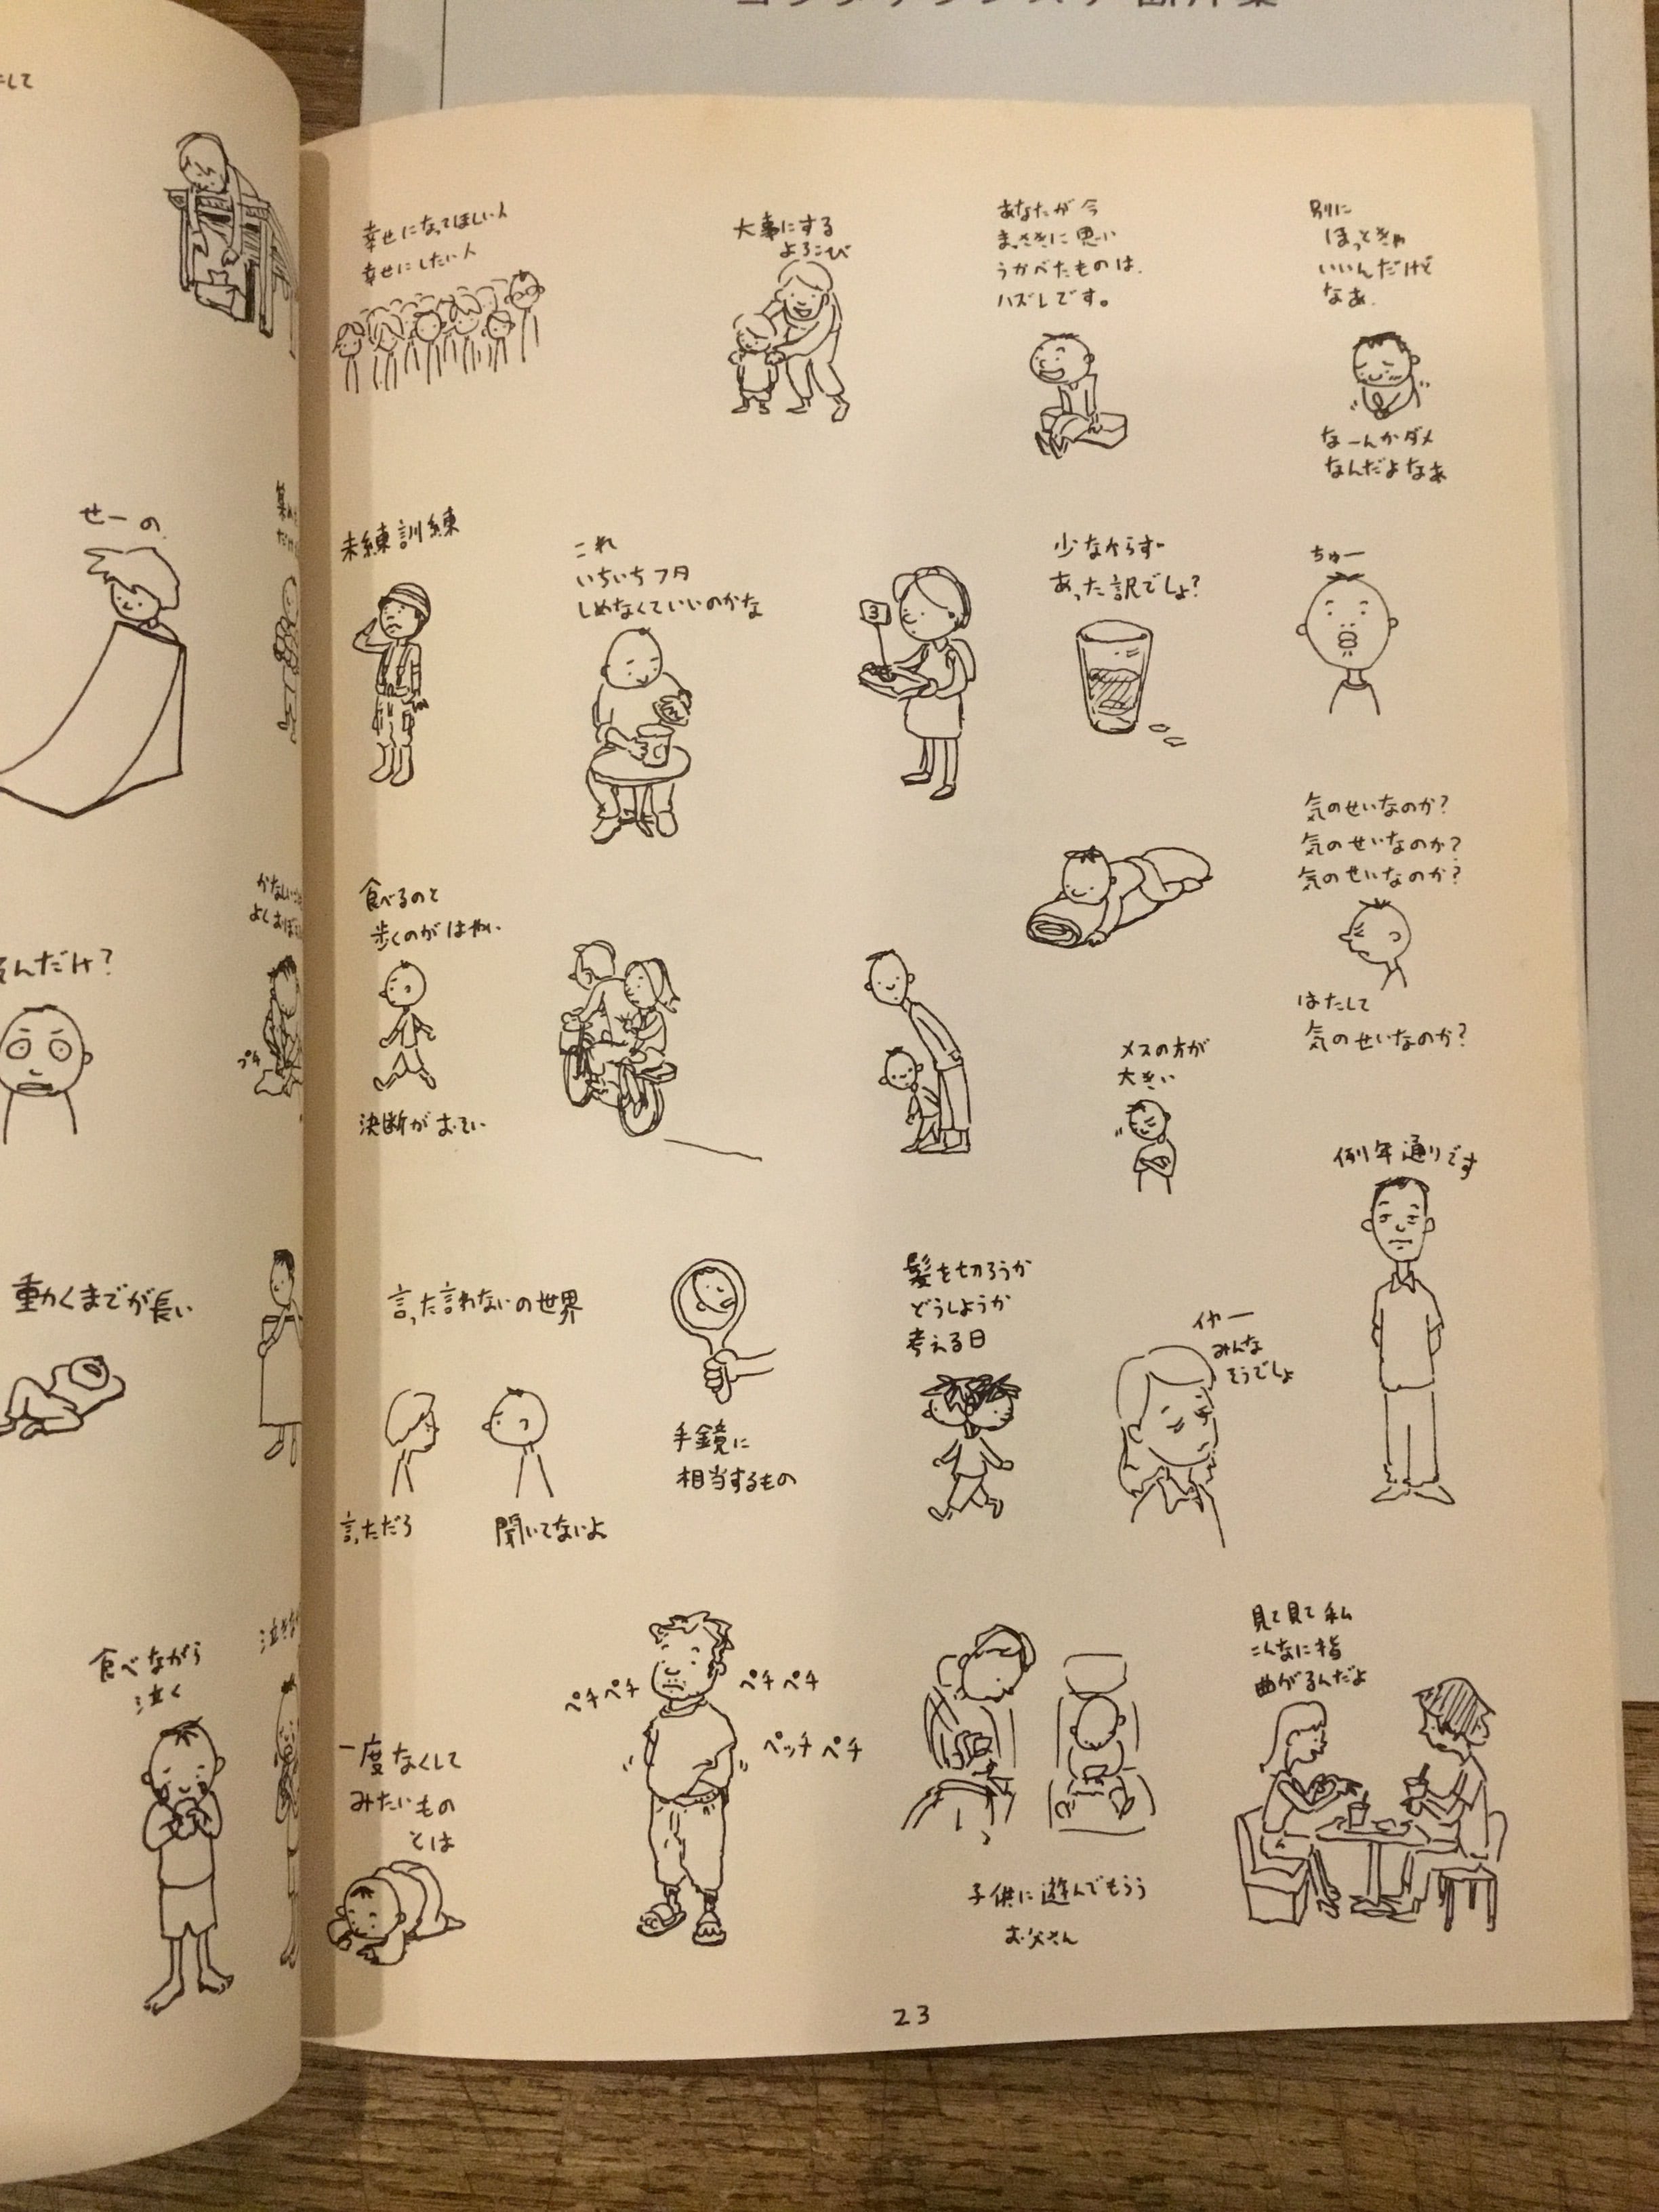 して
せーの
んだけ?
動くまでが長い
食べながら
泣く
プチ
幸せになってほしい人
幸せにしたい人
大事にする
よろこび
あなたが今
まっさきに思い
うかべたものは、
ハズレです。
別に
ほっときゃ
いいんだけど
なあ、
なーんかダメ
なんだよなあ
未練訓練
これ
いちいちフタ
しめなくていいのかな
3
少なからず
あった訳でしょ?
ちゅー
食べるのと
歩くのがはやい
決断がおそい
気のせいなのか?
気のせいなのか?
気のせいなのか?
はたして
気のせいなのか?
メスの方が
大きい
例年通りです
言った言わないの世界
言っただろ
聞いてないよ
手鏡に
相当するもの
髪を切ろうか
どうしようか
考える日
イヤー
みんな
そうでしょ
一度なくして
みたいもの
とは
ペチペチ
ペチペチ
ペッチペチ
子供に遊んでもらう
お父さん
見て見て私
こんなに指
曲がるんだよ
23